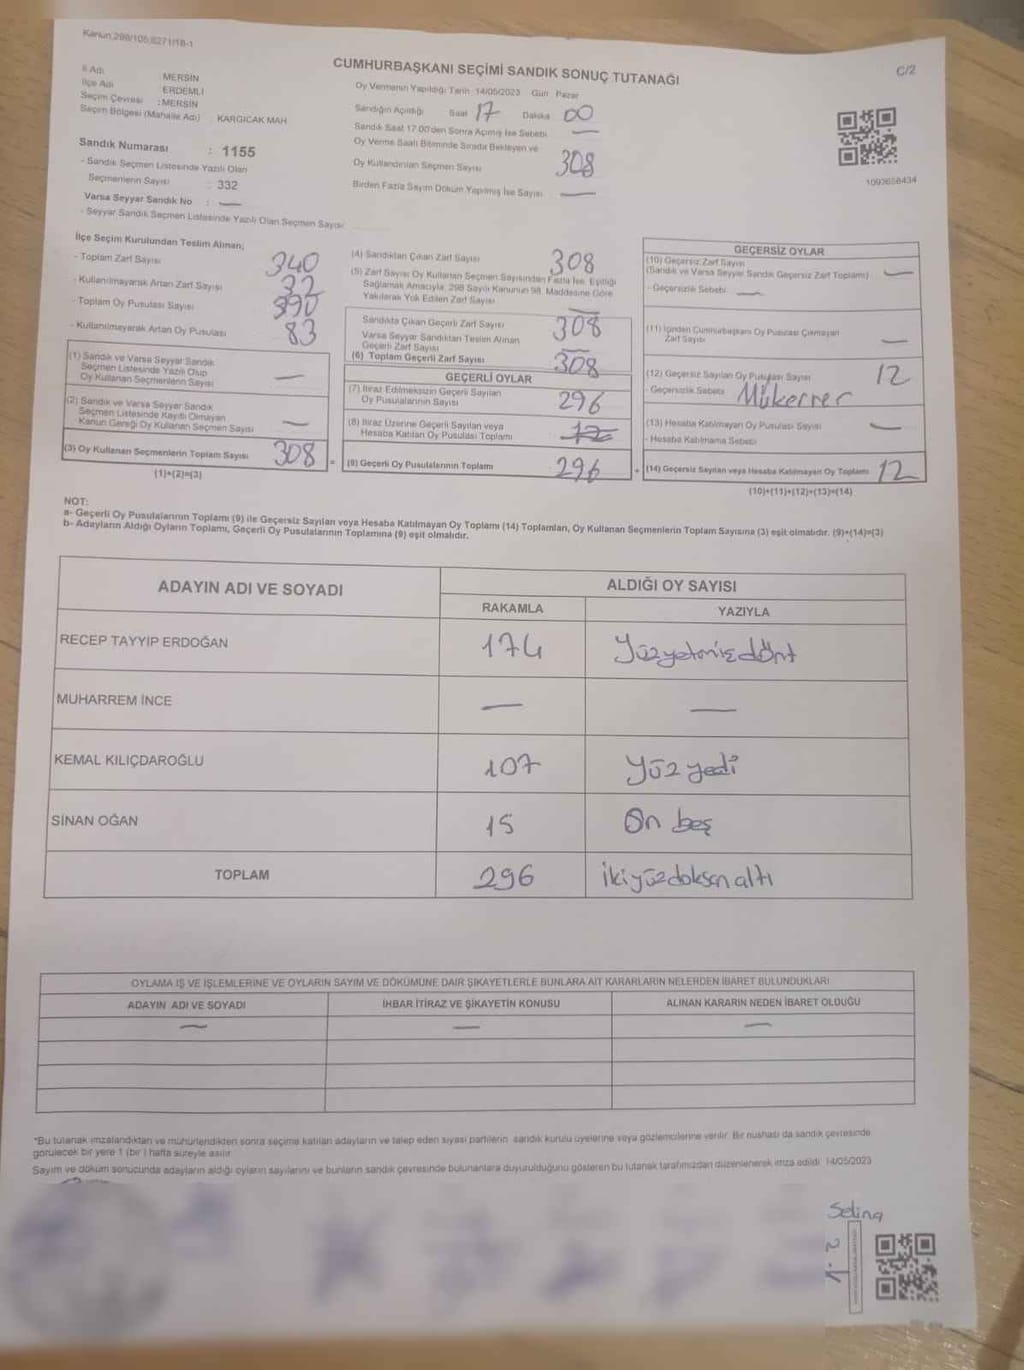 Kanun:298/105;6271/18-1
CUMHURBAŞKANI SEÇİMİ SANDIK SONUÇ TUTANAĞI
C/2
İl Adı : MERSİN
İlçe Adı : ERDEMLİ
Seçim Çevresi : MERSİN
Seçim Bölgesi (Mahalle Adı) : KARGICAK MAH
Sandık Numarası : 1155
- Sandık Seçmen Listesinde Yazılı Olan
Seçmenlerin Sayısı : 332
Varsa Seyyar Sandık No : —
- Seyyar Sandık Seçmen Listesinde Yazılı Olan Seçmen Sayısı:
Oy Vermenin Yapıldığı Tarih 14/05/2023 Gün Pazar
Sandığın Açıldığı Saat 17 Dakika 00
Sandık Saat 17.00'den Sonra Açılmış İse Sebebi —
Oy Verme Saati Bitiminde Sırada Bekleyen ve
Oy Kullandırılan Seçmen Sayısı 308
Birden Fazla Sayım Döküm Yapılmış İse Sayısı —
1093658434
İlçe Seçim Kurulundan Teslim Alınan;
- Toplam Zarf Sayısı 340
- Kullanılmayarak Artan Zarf Sayısı 32
- Toplam Oy Pusulası Sayısı 390
- Kullanılmayarak Artan Oy Pusulası 83
(1) Sandık ve Varsa Seyyar Sandık
Seçmen Listesinde Yazılı Olup
Oy Kullanan Seçmenlerin Sayısı —
(2) Sandık ve Varsa Seyyar Sandık
Seçmen Listesinde Kayıtlı Olmayan
Kanun Gereği Oy Kullanan Seçmen Sayısı —
(3) Oy Kullanan Seçmenlerin Toplam Sayısı 308
(1)+(2)=(3)
(4) Sandıktan Çıkan Zarf Sayısı 308
(5) Zarf Sayısı Oy Kullanan Seçmen Sayısından Fazla İse, Eşitliği
Sağlamak Amacıyla; 298 Sayılı Kanunun 98. Maddesine Göre
Yakılarak Yok Edilen Zarf Sayısı —
Sandıkta Çıkan Geçerli Zarf Sayısı 308
Varsa Seyyar Sandıktan Teslim Alınan
Geçerli Zarf Sayısı —
(6) Toplam Geçerli Zarf Sayısı 308
GEÇERLİ OYLAR
(7) İtiraz Edilmeksizin Geçerli Sayılan
Oy Pusulalarının Sayısı 296
(8) İtiraz Üzerine Geçerli Sayılan veya
Hesaba Katılan Oy Pusulası Toplamı 12
(9) Geçerli Oy Pusulalarının Toplamı 296
GEÇERSİZ OYLAR
(10) Geçersiz Zarf Sayısı
(Sandık ve Varsa Seyyar Sandık Geçersiz Zarf Toplamı) —
- Geçersizlik Sebebi: —
(11) İçinden Cumhurbaşkanı Oy Pusulası Çıkmayan
Zarf Sayısı —
(12) Geçersiz Sayılan Oy Pusulası Sayısı 12
- Geçersizlik Sebebi Mükerrer
(13) Hesaba Katılmayan Oy Pusulası Sayısı —
- Hesaba Katılmama Sebebi
(14) Geçersiz Sayılan veya Hesaba Katılmayan Oy Toplamı 12
(10)+(11)+(12)+(13)=(14)
NOT:
a- Geçerli Oy Pusulalarının Toplamı (9) ile Geçersiz Sayılan veya Hesaba Katılmayan Oy Toplamı (14) Toplamları, Oy Kullanan Seçmenlerin Toplam Sayısına (3) eşit olmalıdır. (9)+(14)=(3)
b- Adayların Aldığı Oyların Toplamı, Geçerli Oy Pusulalarının Toplamına (9) eşit olmalıdır.
ADAYIN ADI VE SOYADI ALDIĞI OY SAYISI
RAKAMLA YAZIYLA
RECEP TAYYİP ERDOĞAN 174 Yüzyetmişdört
MUHARREM İNCE — —
KEMAL KILIÇDAROĞLU 107 Yüz yedi
SİNAN OĞAN 15 On beş
TOPLAM 296 ikiyüzdoksanaltı
OYLAMA İŞ VE İŞLEMLERİNE VE OYLARIN SAYIM VE DÖKÜMÜNE DAİR ŞİKAYETLERLE BUNLARA AİT KARARLARIN NELERDEN İBARET BULUNDUKLARI
ADAYIN ADI VE SOYADI İHBAR İTİRAZ VE ŞİKAYETİN KONUSU ALINAN KARARIN NEDEN İBARET OLDUĞU
— — —
*Bu tutanak imzalandıktan ve mühürlendikten sonra seçime katılan adayların ve talep eden siyasi partilerin sandık kurulu üyelerine veya gözlemcilerine verilir. Bir nüshası da sandık çevresinde
görülecek bir yere 1 (bir) hafta süreyle asılır.
Sayım ve döküm sonucunda adayların aldığı oyların sayılarını ve bunların sandık çevresinde bulunanlara duyurulduğunu gösteren bu tutanak tarafımızdan düzenlenerek imza edildi. 14/05/2023